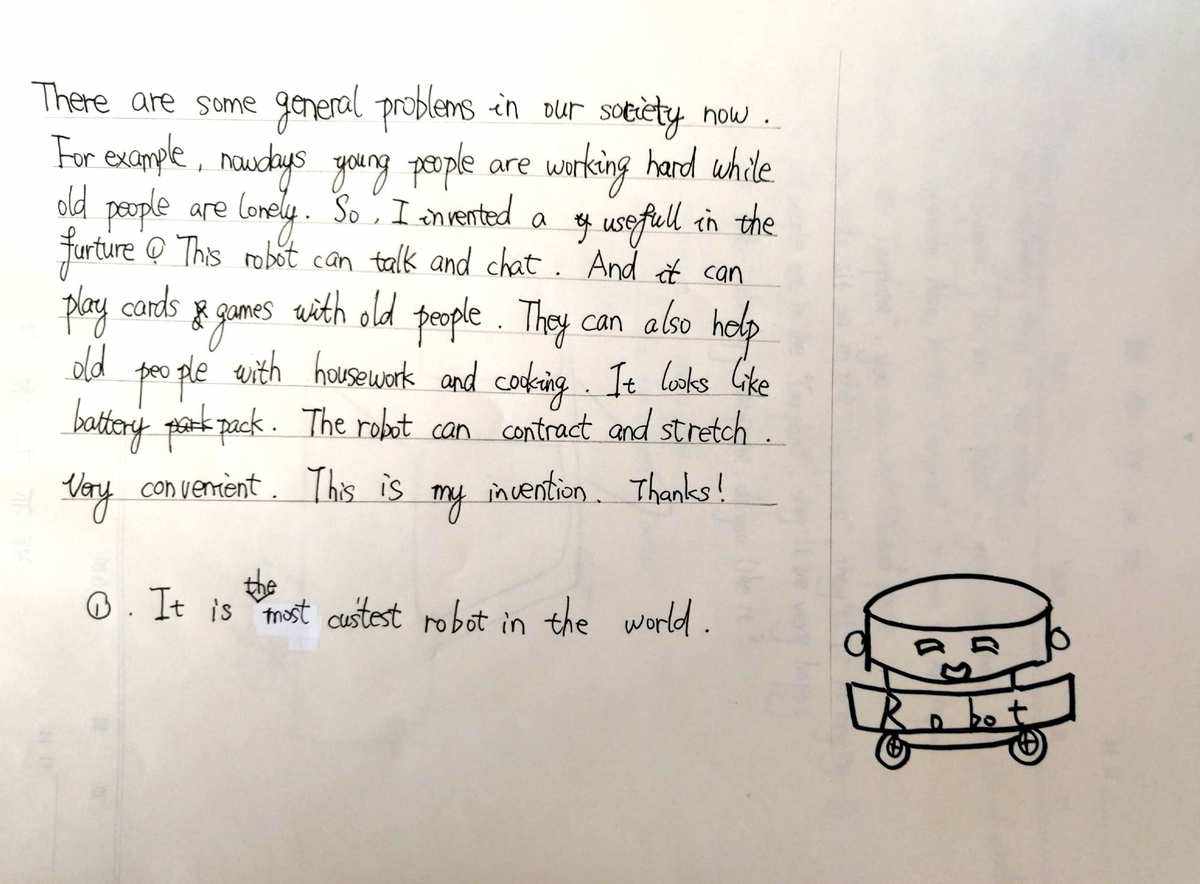 There are some general problems in our society now.
For example, nowdays young people are working hard while
old people are lonely. So, I invented a usefull in the
furture ① This robot can talk and chat. And it can
play cards games with old people. They can also help
old people with housework and cooking. It looks like
battery park pack. The robot can contract and stretch.
Very convenient. This is my invention. Thanks!
①. It is the most custest robot in the world.
Robot